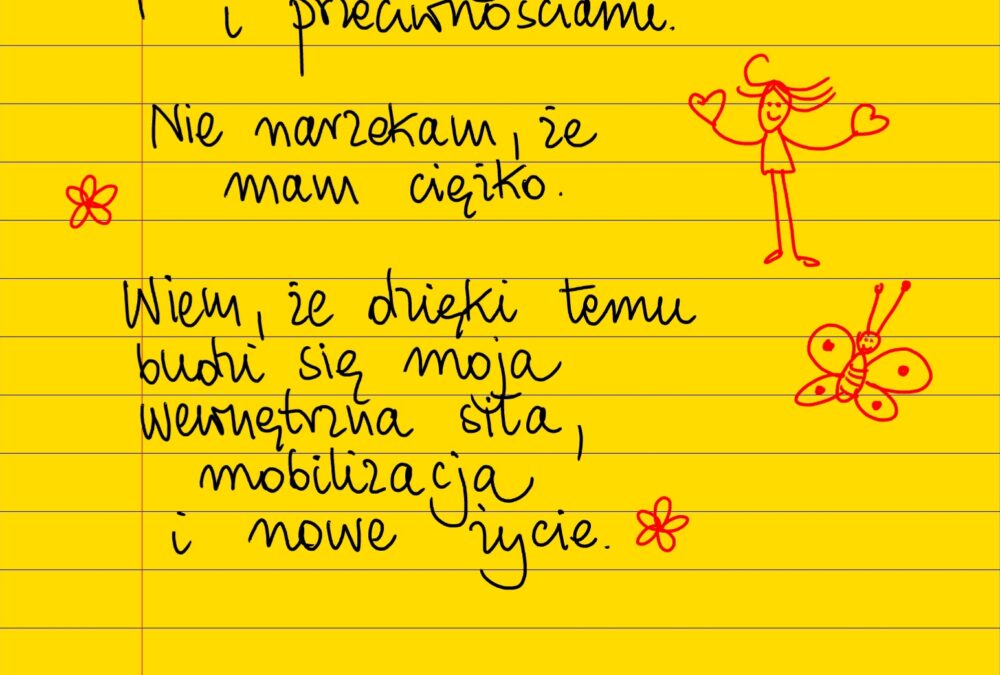 i przeciwnościami.
Nie narzekam, że
mam ciężko.
Wiem, że dzięki temu
budzi się moja
wewnętrzna siła,
mobilizacja
i nowe życie.